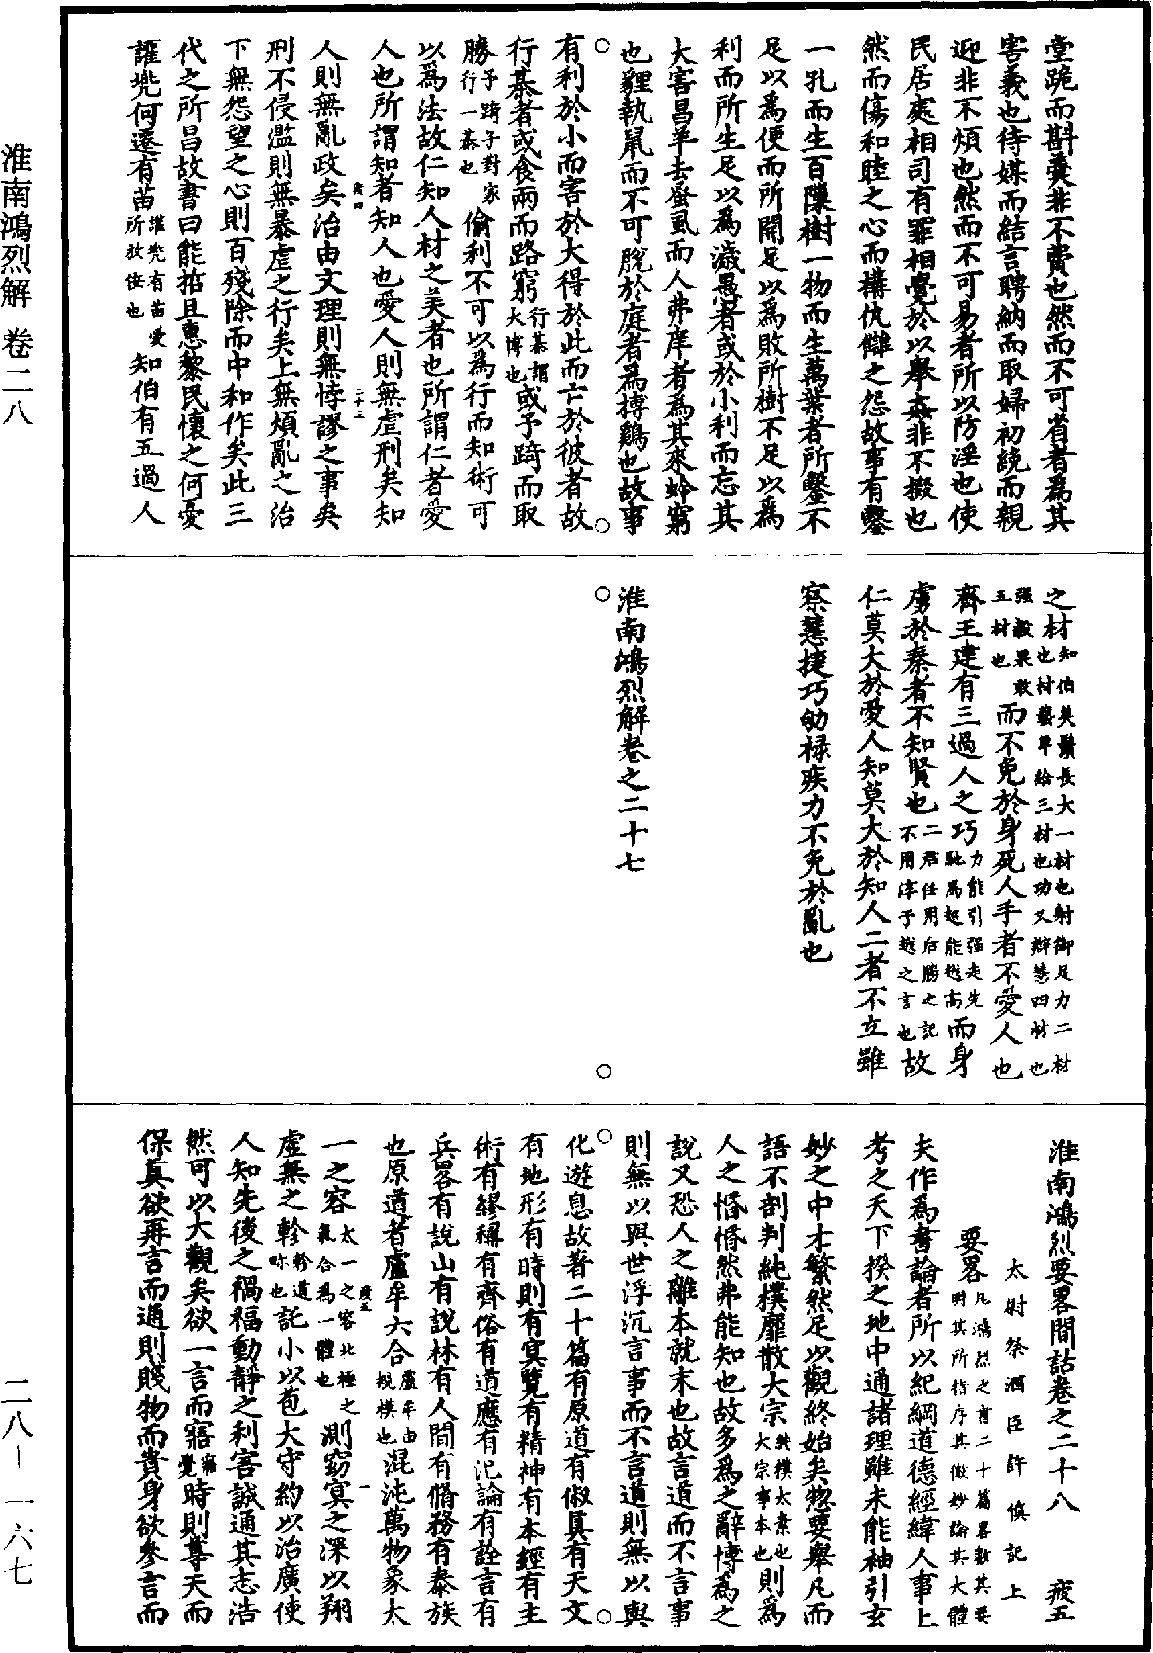 堂跪而斟羹非不費也然而不可省者為其
害義也待媒而結言聘納而取婦初絻而親
迎非不煩也然而不可易者所以防淫也使
民居處相司有罪相覺於以舉姦非不掇也
然而傷和睦之心而構仇讎之怨故事有鑿
一孔而生百隟樹一物而生萬葉者所鑿不
足以為便而所開足以為敗所樹不足以為
利而所生足以為濊愚者或於小利而忘其
大害昌羊去蚤虱而人弗庠者為其來蛉窮
也貍執鼠而不可脫於庭者為搏鷄也故事
有利於小而害於大得於此而亡於彼者故
行棊者或食兩而路窮行棊謂大博也或予踦而取
勝予踦予對家行一棊也偷利不可以為行而知術可
以為法故仁知人材之美者也所謂仁者愛
人也所謂知者知人也愛人則無虐刑矣知
人則無亂政矣治由文理則無悖謬之事矣
刑不侵濫則無暴虐之行矣上無煩亂之治
下無怨望之心則百殘除而中和作矣此三
代之所昌故書曰能哲且惠黎民懷之何憂
讙兠何遷有苗讙兠有苗堯所放佞也知伯有五過人
之材知伯美鬚長大一材也射御足力二材也材藝畢給三材也功文辯慧四材也强毅果敢五材也而不免於身死人手者不愛人也
齊王建有三過人之巧力能引强走先馳馬超能越高而身
虜於秦者不知賢也二君任用后勝之記不用淳于越之言也故
仁莫大於愛人知莫大於知人二者不立雖
察慧捷巧劬祿疾力不免於亂也
淮南鴻烈解卷之二十七
淮南鴻烈要畧間詁卷之二十八 疲五
太尉祭酒臣許慎記上
要畧凡鴻烈之書二十篇畧數其要明其所指序其微妙論其大體
夫作為書論者所以紀綱道德經緯人事上
考之天下揆之地中通諸理雖未能袖引玄
妙之中才繁然足以觀終始矣惣要舉凡而
語不剖判純樸靡散大宗純樸太素也大宗事本也則為
人之惛惛然弗能知也故多為之辭博為之
說又恐人之離本就末也故言道而不言事
則無以與世浮沉言事而不言道則無以與
化遊息故著二十篇有原道有俶真有天文
有地形有時則有㝠覽有精神有本經有主
術有繆稱有齊俗有道應有氾論有詮言有
兵畧有說山有說林有人間有脩務有泰族
也原道者盧牟六合盧牟由規模也混沌萬物象太
一之容太一之容北極之氣合為一體也測窈㝠之深以翔
虛無之軫軫道畛也託小以苞大守約以治廣使
人知先後之禍福動靜之利害誠通其志浩
然可以大觀矣欲一言而寤寤覺時則尊天而
保真欲再言而通則賤物而貴身欲參言而
淮南鴻烈解 卷二八
二八－一六七